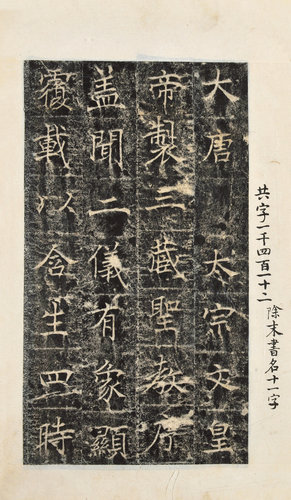 共字一千四百一十二除末書名十一字
大唐 太宗文皇
帝製三藏聖教序
盖聞二儀有象顯
覆載以含生四時